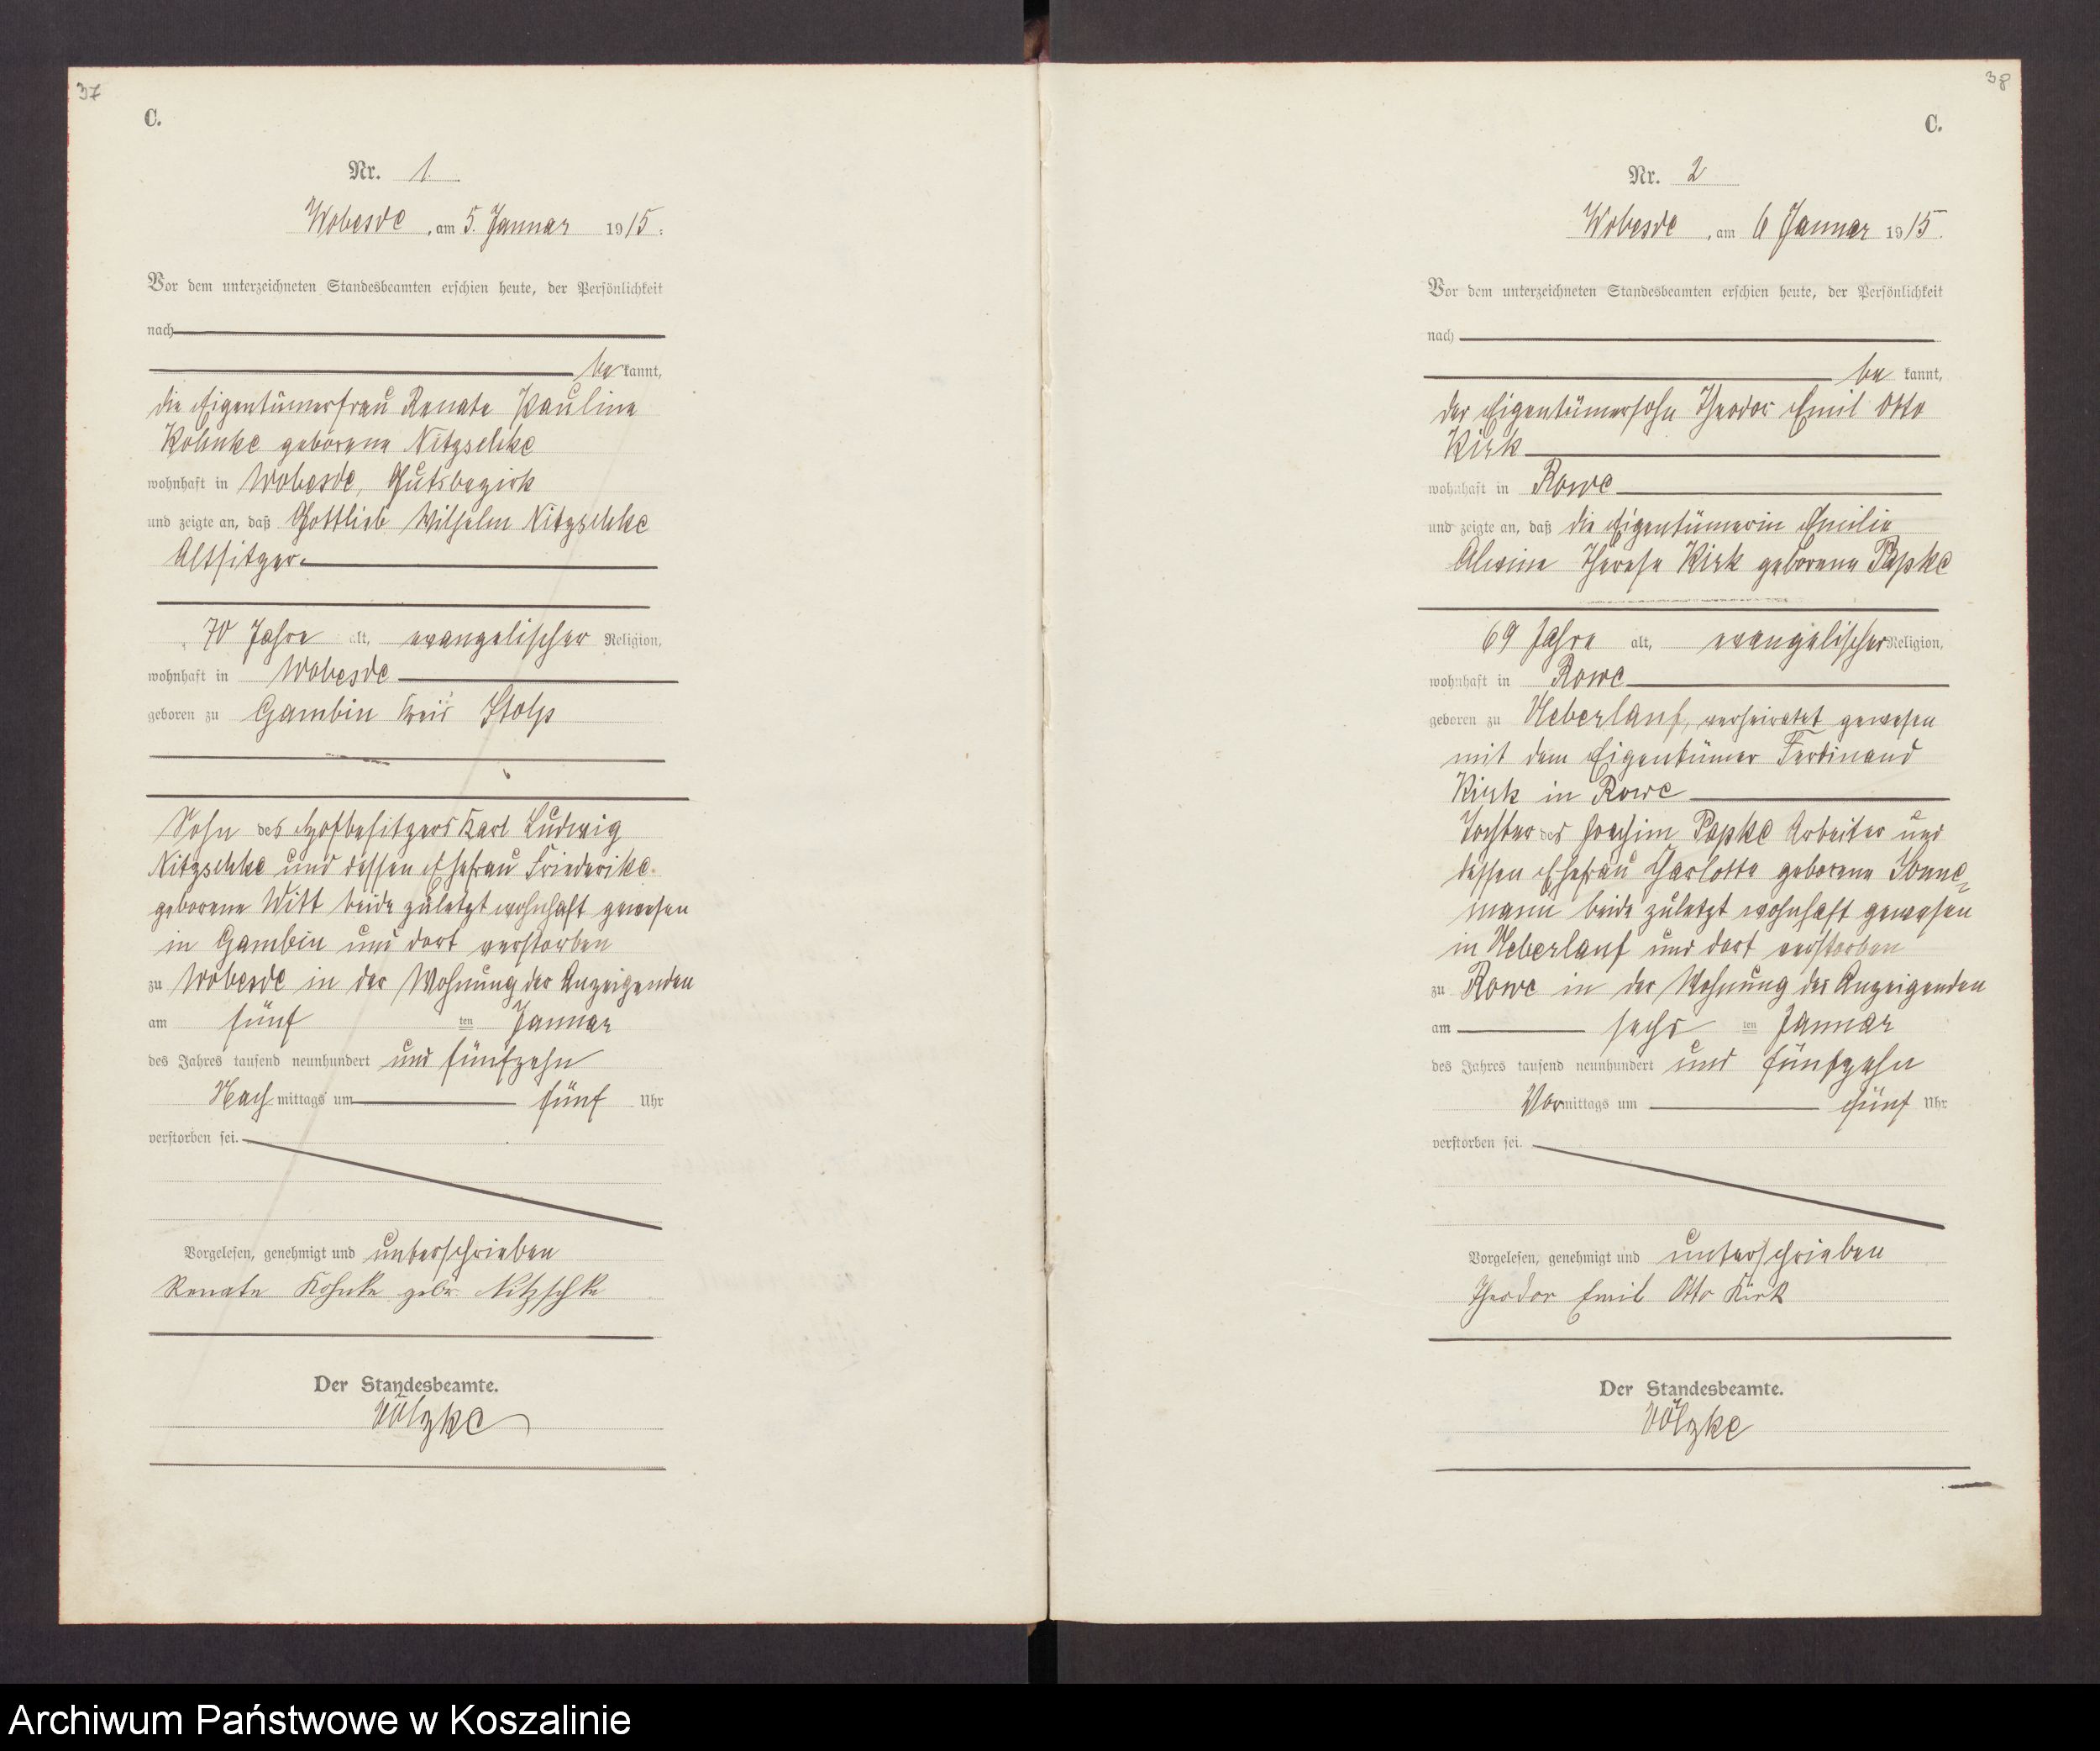 37
C.
Nr. 1.
Wobesde, am 5. Januar 1915.
Vor dem unterzeichneten Standesbeamten erschien heute, der Persönlichkeit
nach
be kannt,
die Eigentümerfrau Renate Pauline
Kohnke geborene Nitzschke
wohnhaft in Wobesde, Gutsbezirk
und zeigte an, daß Gottlieb Wilhelm Nitzschke
Altsitzer
70 Jahre alt, evangelischer Religion,
wohnhaft in Wobesde
geboren zu Gambin Kreis Stolp
Sohn des Hofbesitzers Karl Ludwig
Nitzschke und dessen Ehefrau Friederike
geborene Witt beide zuletzt wohnhaft gewesen
in Gambin und dort verstorben
zu Wobesde in der Wohnung der Anzeigenden
am fünf ten Januar
des Jahres tausend neunhundert und fünfzehn
Nach mittags um fünf Uhr
verstorben sei.
Vorgelesen, genehmigt und unterschrieben
Renate Kohnke gebr. Nitzschke
Der Standesbeamte.
Völzke
38
C.
Nr. 2
Wobesde, am 6 Januar 1915.
Vor dem unterzeichneten Standesbeamten erschien heute, der Persönlichkeit
nach
be kannt,
der Eigentümersohn Theodor Emil Otto
Kirk
wohnhaft in Rowe
und zeigte an, daß die Eigentümerin Emilie
Alwine Therese Kirk geborene Papke
69 Jahre alt, evangelischer Religion,
wohnhaft in Rowe
geboren zu Ueberlauf, verheiratet gewesen
mit dem Eigentümer Ferdinand
Kirk in Rowe
Tochter des Joachim Papke Arbeiter und
dessen Ehefrau Charlotte geborene Sonne=
mann beide zuletzt wohnhaft gewesen
in Ueberlauf und dort verstorben
zu Rowe in der Wohnung des Anzeigenden
am sechs ten Januar
des Jahres tausend neunhundert und fünfzehn
Vor mittags um fünf Uhr
verstorben sei.
Vorgelesen, genehmigt und unterschrieben
Theodor Emil Otto Kirk
Der Standesbeamte.
Völzke
Archiwum Państwowe w Koszalinie